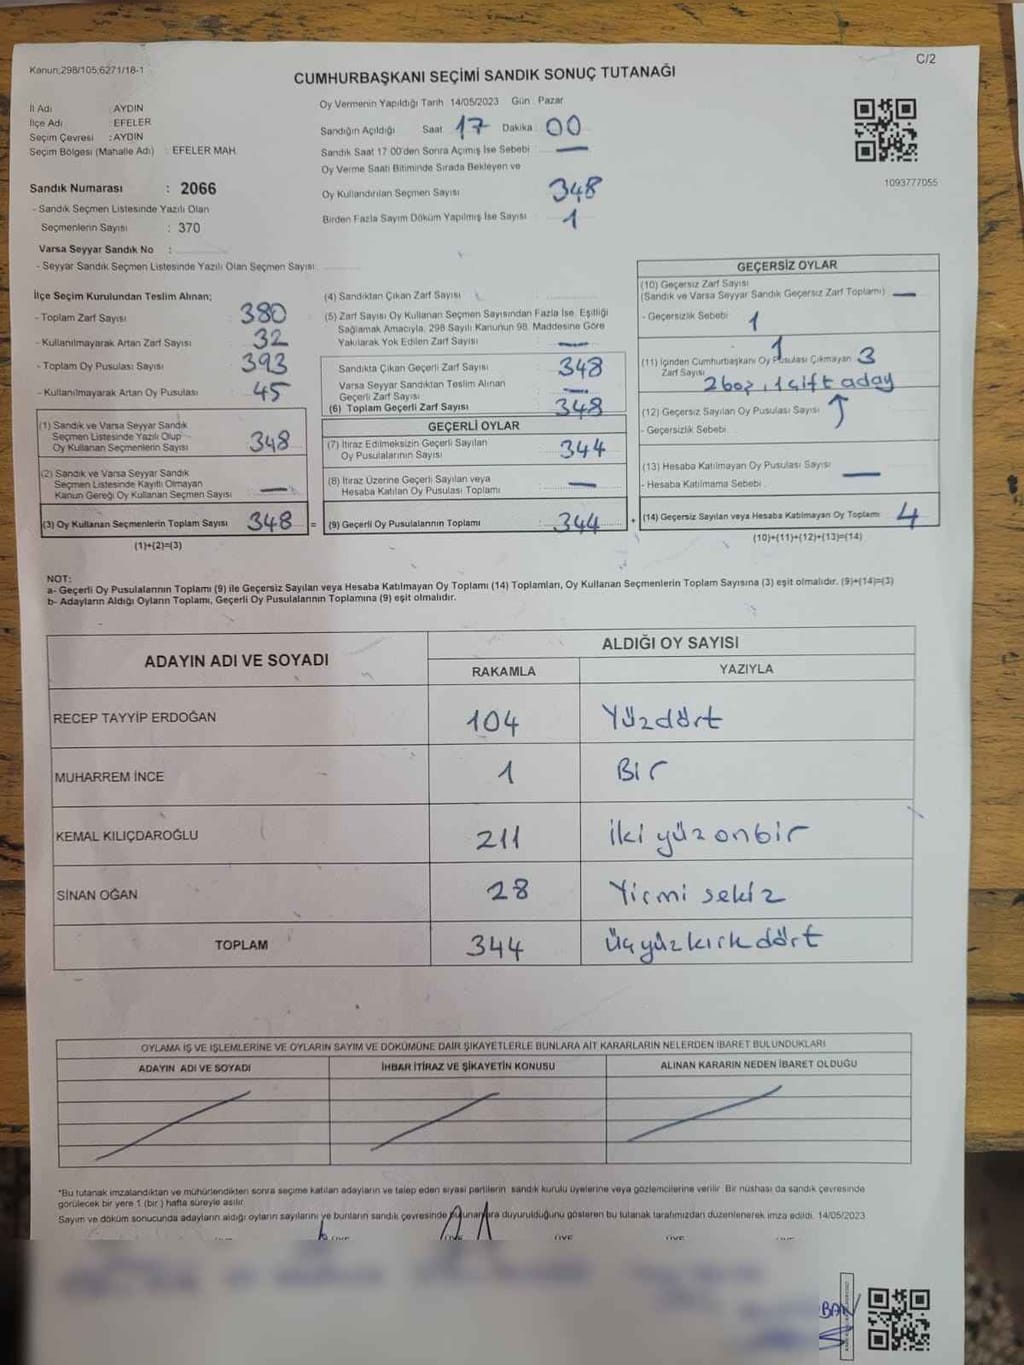 Kanun;298/105;6271/18-1
C/2
CUMHURBAŞKANI SEÇİMİ SANDIK SONUÇ TUTANAĞI
İl Adı : AYDIN
İlçe Adı : EFELER
Seçim Çevresi : AYDIN
Seçim Bölgesi (Mahalle Adı) : EFELER MAH.
Sandık Numarası : 2066
- Sandık Seçmen Listesinde Yazılı Olan
Seçmenlerin Sayısı : 370
Varsa Seyyar Sandık No :
- Seyyar Sandık Seçmen Listesinde Yazılı Olan Seçmen Sayısı
Oy Vermenin Yapıldığı Tarih 14/05/2023 Gün Pazar
Sandığın Açıldığı Saat 17 Dakika 00
Sandık Saat 17 00'den Sonra Açımış İse Sebebi —
Oy Verme Saati Bitiminde Sırada Bekleyen ve
Oy Kullandırılan Seçmen Sayısı 348
Birden Fazla Sayım Döküm Yapılmış İse Sayısı 1
1093777055
İlçe Seçim Kurulundan Teslim Alınan;
- Toplam Zarf Sayısı 380
- Kullanılmayarak Artan Zarf Sayısı 32
- Toplam Oy Pusulası Sayısı 393
- Kullanılmayarak Artan Oy Pusulası 45
(1) Sandık ve Varsa Seyyar Sandık
Seçmen Listesinde Yazılı Olup
Oy Kullanan Seçmenlerin Sayısı 348
(2) Sandık ve Varsa Seyyar Sandık
Seçmen Listesinde Kayıtlı Olmayan
Kanun Gereği Oy Kullanan Seçmen Sayısı —
(3) Oy Kullanan Seçmenlerin Toplam Sayısı 348 =
(1)+(2)=(3)
(4) Sandıktan Çıkan Zarf Sayısı
(5) Zarf Sayısı Oy Kullanan Seçmen Sayısından Fazla İse, Eşitliği
Sağlamak Amacıyla, 298 Sayılı Kanunun 98. Maddesine Göre
Yakılarak Yok Edilen Zarf Sayısı —
Sandıkta Çıkan Geçerli Zarf Sayısı 348
Varsa Seyyar Sandıktan Teslim Alınan
Geçerli Zarf Sayısı —
(6) Toplam Geçerli Zarf Sayısı 348
GEÇERLİ OYLAR
(7) İtiraz Edilmeksizin Geçerli Sayılan
Oy Pusulalarının Sayısı 344
(8) İtiraz Üzerine Geçerli Sayılan veya
Hesaba Katılan Oy Pusulası Toplamı —
(9) Geçerli Oy Pusulalarının Toplamı : 344 +
GEÇERSİZ OYLAR
(10) Geçersiz Zarf Sayısı
(Sandık ve Varsa Seyyar Sandık Geçersiz Zarf Toplamı) —
- Geçersizlik Sebebi 1
1
(11) İçinden Cumhurbaşkanı Oy Pusulası Çıkmayan 3
Zarf Sayısı
2 boş, 1 çift aday
(12) Geçersiz Sayılan Oy Pusulası Sayısı ↑
- Geçersizlik Sebebi
(13) Hesaba Katılmayan Oy Pusulası Sayısı —
- Hesaba Katılmama Sebebi
(14) Geçersiz Sayılan veya Hesaba Katılmayan Oy Toplamı 4
(10)+(11)+(12)+(13)=(14)
NOT:
a- Geçerli Oy Pusulalarının Toplamı (9) ile Geçersiz Sayılan veya Hesaba Katılmayan Oy Toplamı (14) Toplamları, Oy Kullanan Seçmenlerin Toplam Sayısına (3) eşit olmalıdır. (9)+(14)=(3)
b- Adayların Aldığı Oyların Toplamı, Geçerli Oy Pusulalarının Toplamına (9) eşit olmalıdır.
ADAYIN ADI VE SOYADI
ALDIĞI OY SAYISI
RAKAMLA YAZIYLA
RECEP TAYYİP ERDOĞAN 104 Yüzdört
MUHARREM İNCE 1 Bir
KEMAL KILIÇDAROĞLU 211 iki yüzonbir
SİNAN OĞAN 28 Yirmi sekiz
TOPLAM 344 Üçyüzkırkdört
OYLAMA İŞ VE İŞLEMLERİNE VE OYLARIN SAYIM VE DÖKÜMÜNE DAİR ŞİKAYETLERLE BUNLARA AİT KARARLARIN NELERDEN İBARET BULUNDUKLARI
ADAYIN ADI VE SOYADI İHBAR İTİRAZ VE ŞİKAYETİN KONUSU ALINAN KARARIN NEDEN İBARET OLDUĞU
*Bu tutanak imzalandıktan ve mühürlendikten sonra seçime katılan adayların ve talep eden siyasi partilerin sandık kurulu üyelerine veya gözlemcilerine verilir. Bir nüshası da sandık çevresinde
görülecek bir yere 1 (bir) hafta süreyle asılır.
Sayım ve döküm sonucunda adayların aldığı oyların sayılarını ve bunların sandık çevresinde bulunanlara duyurulduğunu gösteren bu tutanak tarafımızdan düzenlenerek imza edildi. 14/05/2023